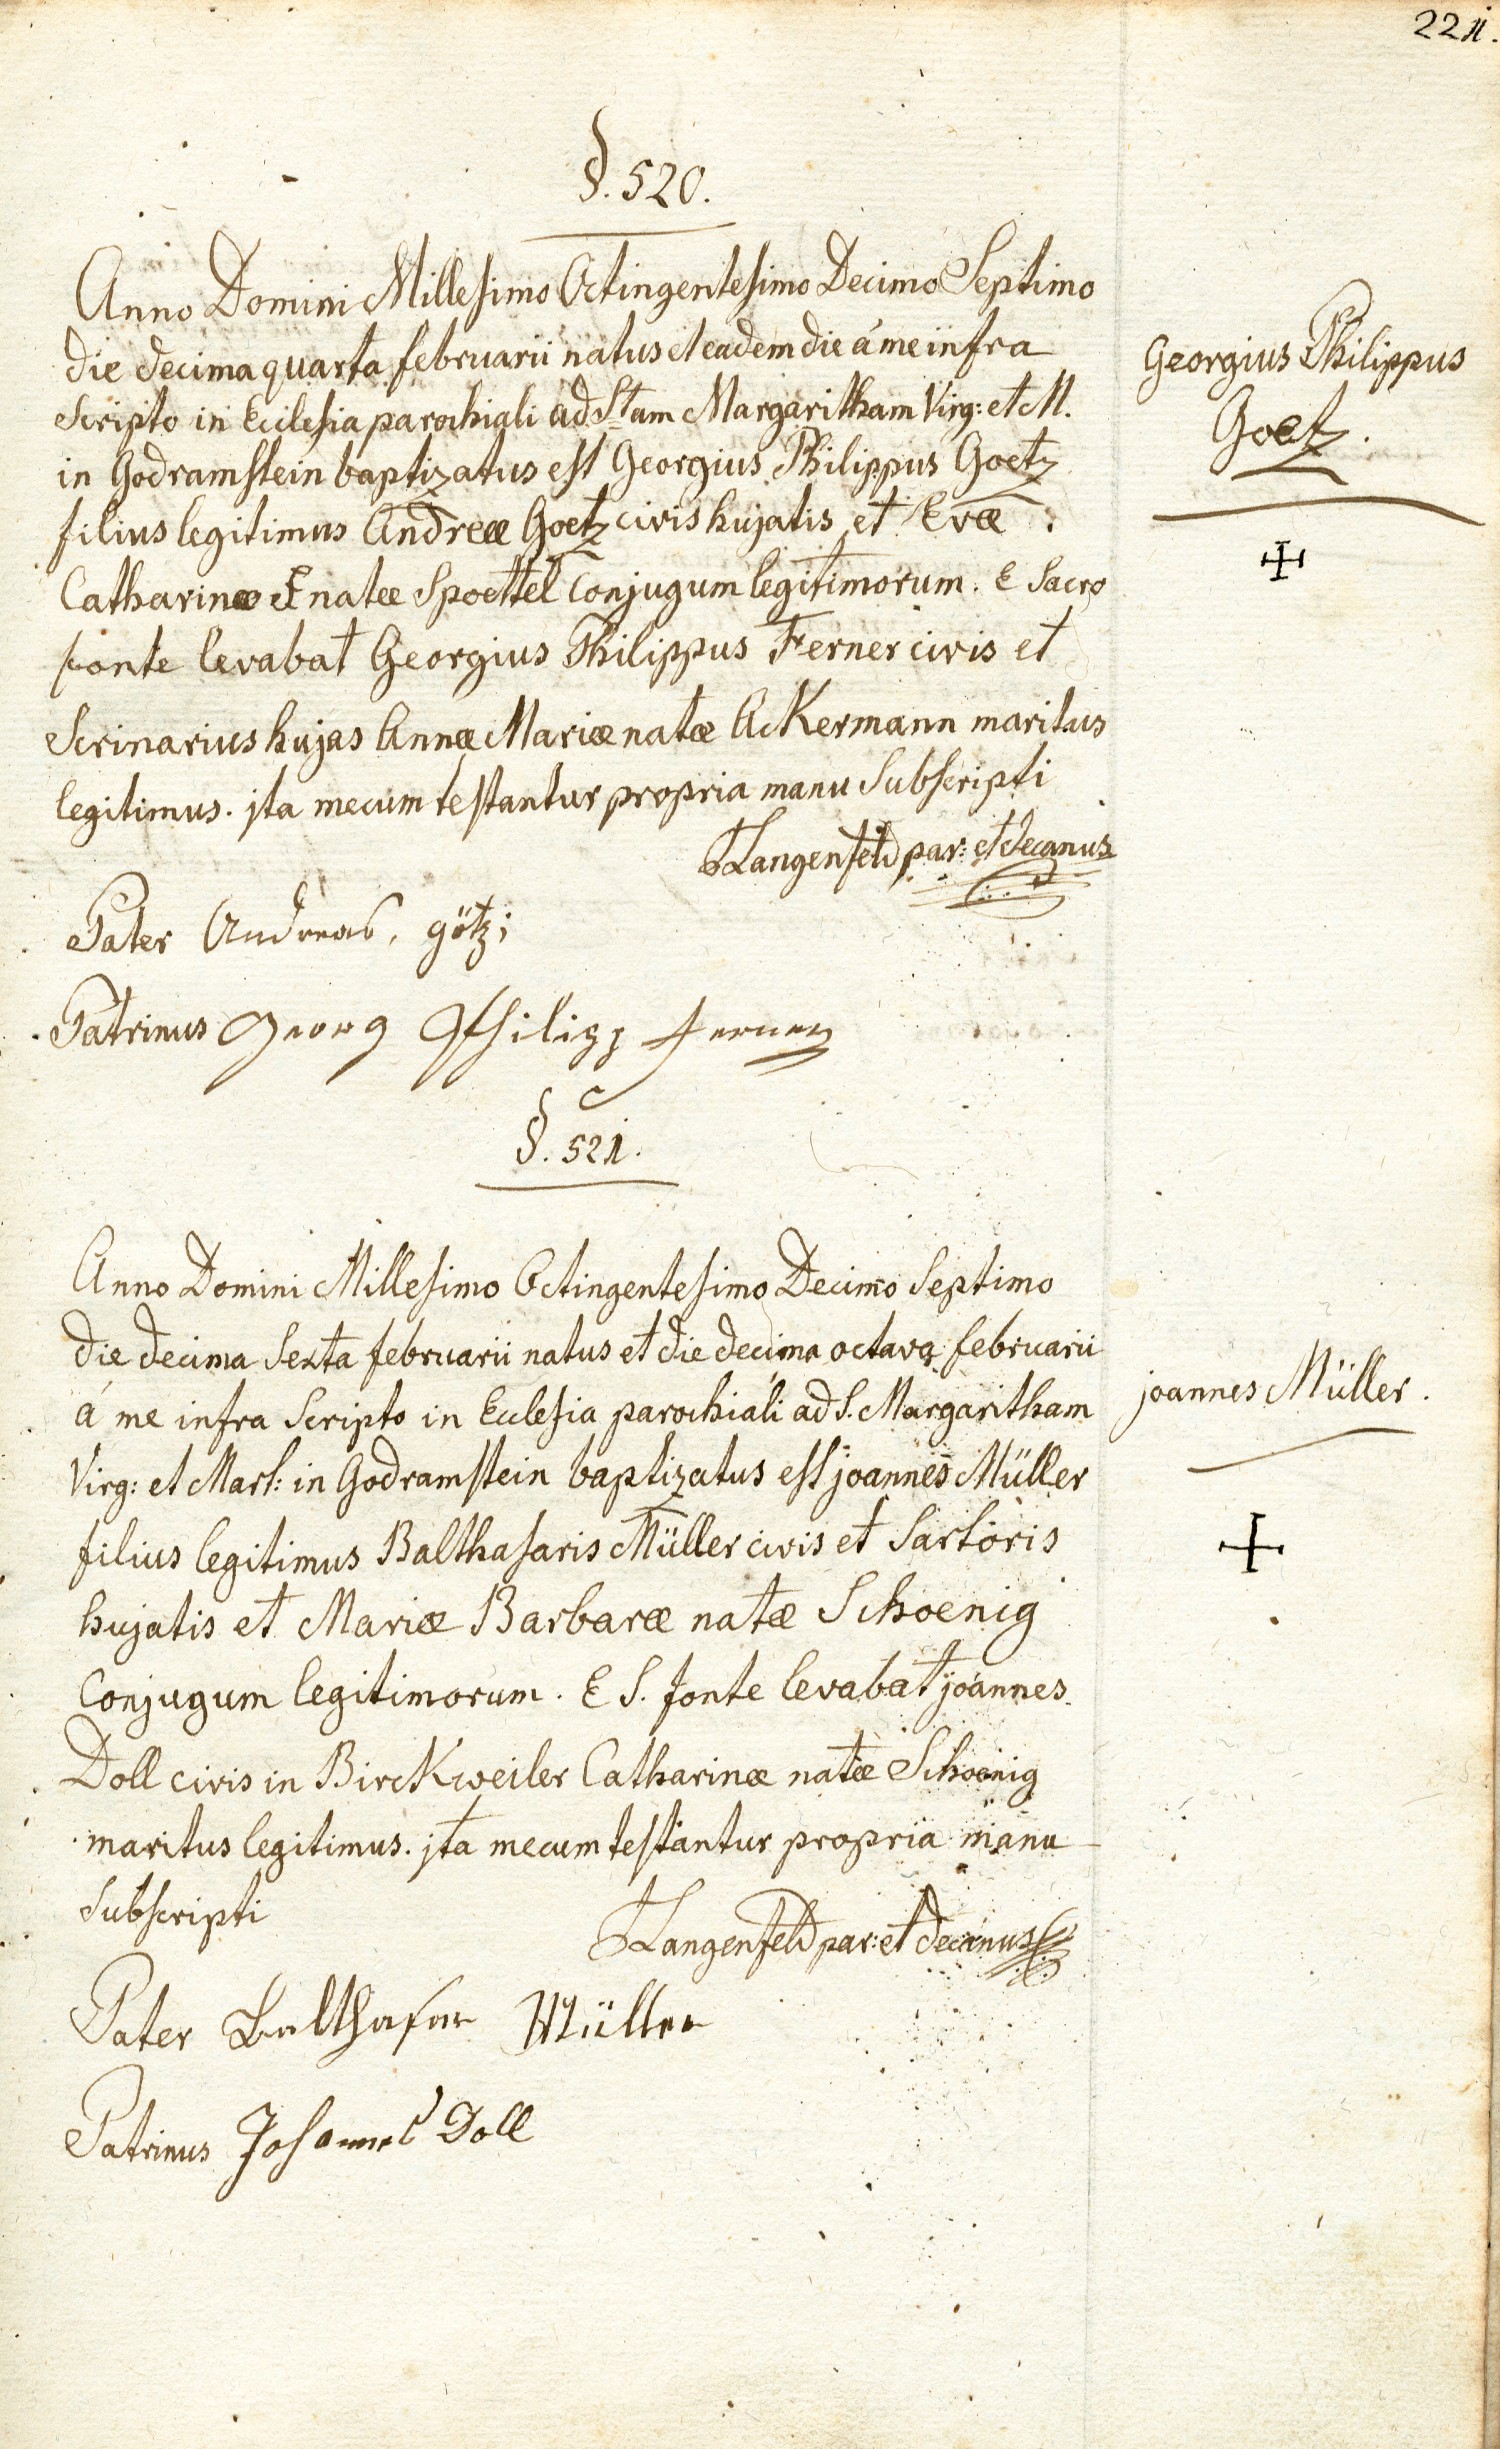 221.
§. 520.
Anno Domini Millesimo Octingentesimo Decimo Septimo
die decima quarta februarii natus et eadem die á me infra
scripto in Ecclesia parochiali ad Stam Margaritham Virg: et M.
in Godramstein baptizatus est Georgius Philippus Goetz
filius legitimus Andreæ Goetz civis hujatis et Evæ
Catharinæ natæ Spoettel conjugum legitimorum. E Sacro
fonte levabat Georgius Philippus Ferner civis et
Scrinarius hujas Annæ Mariæ natæ Ackermann maritus
legitimus. jta mecum testantur propria manu Subscripti
Langenfeld par: et decanus
Pater Andreas, götz;
Patrinus Georg Philipp ferner
Georgius Philippus
Goetz.
§. 521.
Anno Domini Millesimo Octingentesimo Decimo Septimo
die decima Sexta februarii natus et die decima octava februarii
á me infra Scripto in Ecclesia parochiali ad S. Margaritham
Virg: et Mart: in Godramstein baptizatus est joannes Müller
filius legitimus Balthasaris Müller civis et Sartoris
hujatis et Mariæ Barbaræ natæ Schoenig
Conjugum legitimorum. E S. fonte levabat joannes
Doll civis in Birckweiler Catharinæ natæ Schoenig
maritus legitimus. jta mecum testantur propria manu
Subscripti
Langenfeld par: et decanus
Pater Balthasar Müller
Patrinus Johannes Doll
joannes Müller.